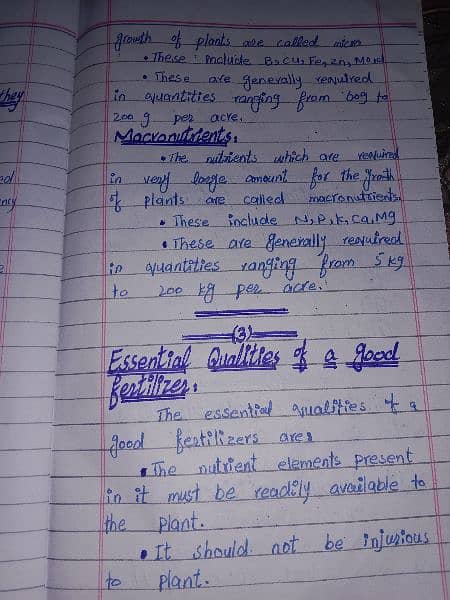 growth of plants are called micro
• These include B, Cu, Fe, Zn, Mo,
• These are generally required
in quantities ranging from 60g to
200 g per acre.
Macronutrients.
• The nutrients which are required
in very large amount for the growth
of plants are called macronutrients.
• These include N, P, K, Ca, Mg
• These are generally required
in quantities ranging from 5 kg
to 200 kg per acre.
(3)
Essential Qualities of a good
fertilizer.
The essential qualities of a
good fertilizers are:
• The nutrient elements present
in it must be readily available to
the plant.
• It should not be injurious
to plant.
they